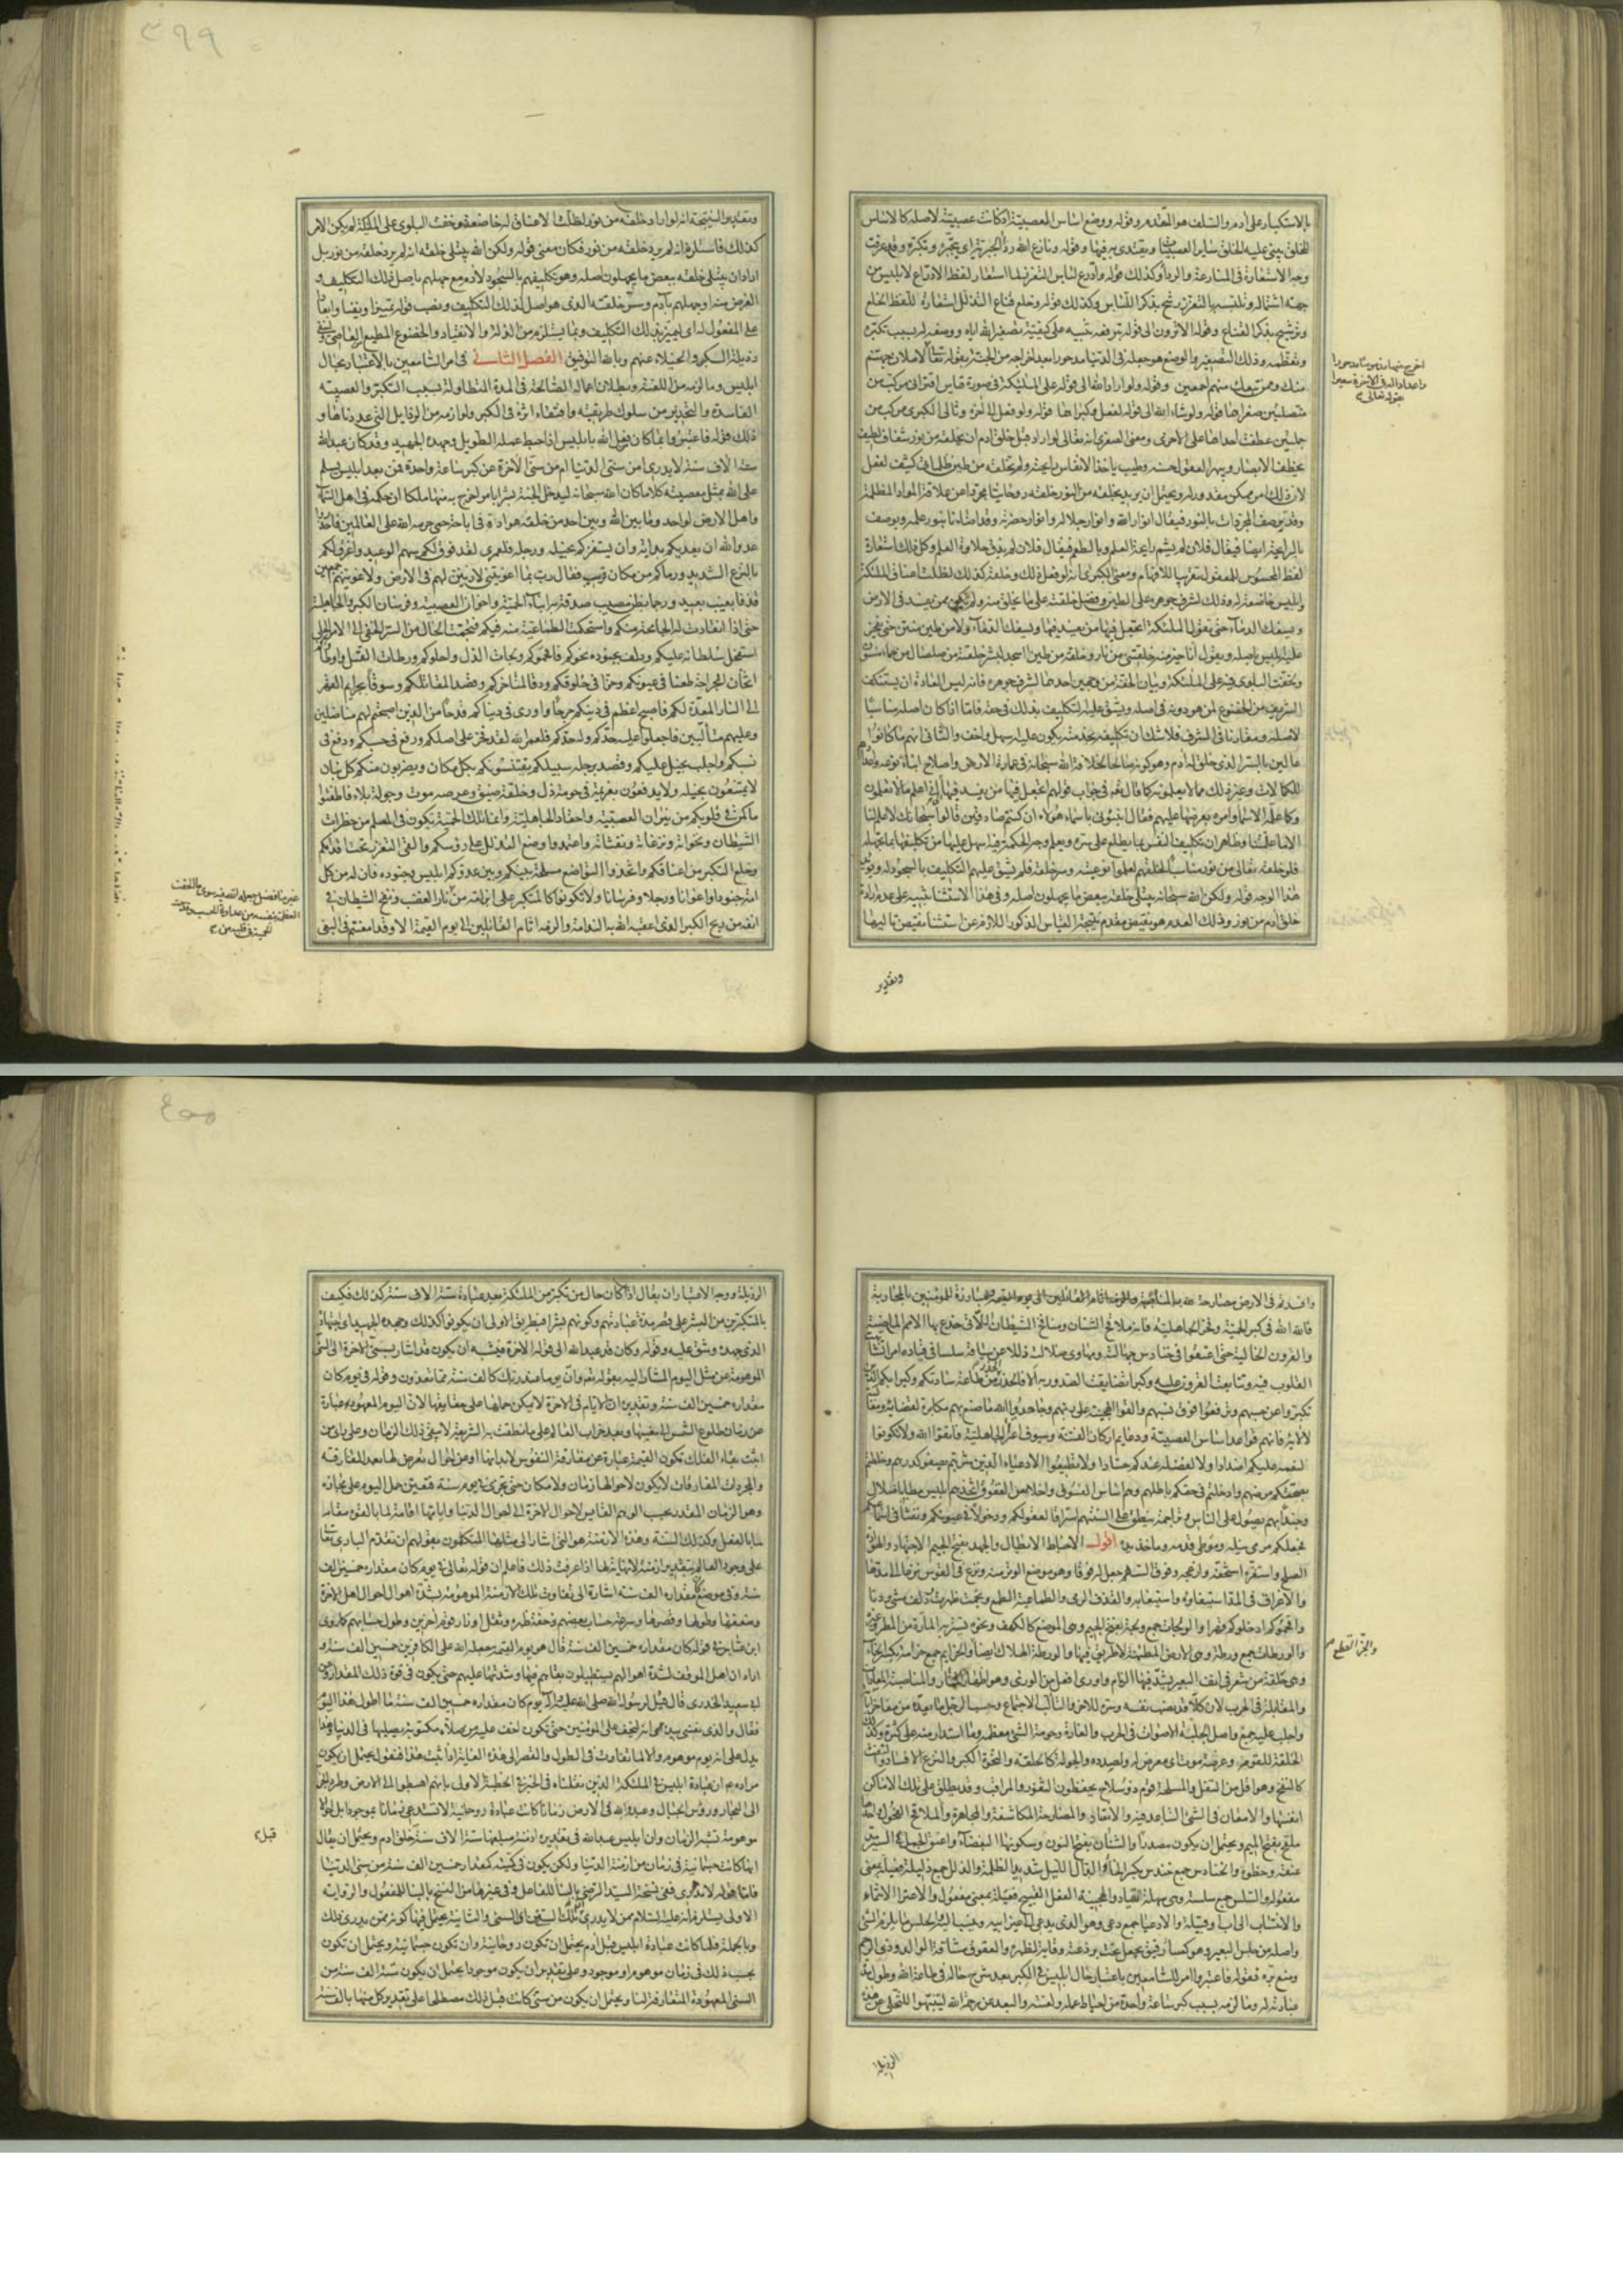 بالاستكبار على ادم والسلف هو المتقدم وقوله ووضع اساس العصبية اذ كانت عصبيته لاصله كالاساس
للخلق يبنى عليه الخلق ساير العصبيات ويقتدى به فيها وقوله ونازع الله رداء الجبرية اى بتجبره وتكبره وقد عرفت
وجه الاستعارة فى المنازعة والرداء وكذلك قوله وادرع لباس التعزز استعار لفظ الادراع لابليس من
جهة اشتماله وتلبسه بالتعزز ورشح بذكر اللباس وكذلك قوله وخلع قناع التذلل استعارة للفظ الخلع
وترشيح بذكر القناع وقوله الا ترون الى قوله بترفعه تنبيه على كيفية تصغير الله اياه ووضعه له بسبب تكبره
وتعظمه وذلك التصغير والوضع هو جعله فى الدنيا مدحورا بعد اخراجه من الجنة بقوله تعالى لاملان جهنم
منك وممن تبعك منهم اجمعين وقوله ولو اراد الله الى قوله على الملئكة فى صورة قياس اقترانى مركب من
متصلتين صغراهما قوله ولو شاء الله الى قوله لفعل وكبراهما قوله ولو فعل الى اخره وتالى الكبرى مركب من
جملتين عطفت احداهما على الاخرى ومعنى الصغرى انه تعالى لو اراد قبل خلق ادم ان يخلقه من نور شفاف لطيف
يخطف الابصار ويبهر العقول حسنه وطيب ياخذ الانفاس رايحته ولم يخلقه من طين ظلمانى كثيف لفعل
لان ذلك امر ممكن مقدور له ويحتمل ان يريد بخلقه من النور خلقته روحانيا مجردا عن علاقة المواد المظلمة
وقد يوصف المجردات بالنور فيقال انوار الله وانوار جلاله وانوار حضرته وقد اضاءنا بنور علمه ويوصف
بالرايحة ايضا فيقال فلان لم يشم رايحة العلم وبالطعم فيقال فلان لم يذق حلاوة العلم وكل ذلك استعارة
لفظ المحسوس للمعقول تقريبا للافهام ومعنى الكبرى انه لو فعل ذلك وخلقه كذلك لظلت اعناق الملئكة
وابليس خاضعة له وذلك لشرف جوهره على الطين وفضل خلقته على ما يخلق منه ولم يكن ممن يفسد فى الارض
ويسفك الدماء حتى تقول الملئكة اتجعل فيها من يفسد فيها ويسفك الدماء ولا من طين منتن حتى يفخر
عليه ابليس باصله ويقول انا خير منه خلقتنى من نار وخلقته من طين ءاسجد لبشر خلقته من صلصال من حماء مسنون
ولخفت البلوى فيه على الملئكة وبيان الخفة من وجهين احدهما لشرف جوهره فانه ليس العادة ان يستنكف
الشريف من الخضوع لمن هو دونه فى اصله ويشق عليه التكليف بذلك فى حقه فاما اذا كان اصله مناسبا
لاصله ومقارنا فى الشرف فلا شك ان تكليفه بخدمته يكون عليه اسهل واخف والثانى انهم ما كانوا
عالمين بالسر الذى خلق له ادم وهو كونه صالحا لخلافة الله سبحانه فى عمارة الارض واصلاح ابناء نوعه واعدادهم
للكمالات وغير ذلك مما لا يعلمونه كما قال تعه فى جواب قولهم اتجعل فيها من يفسد فيها انى اعلم ما لا تعلمون
وكما علمه الاسماء وامره بعرضها عليهم فقال انبئونى باسماء هؤلاء ان كنتم صادقين قالوا سبحانك لا علم لنا
الا ما علمتنا وظاهر ان تكليف النفس بما يطلع على سره ويعلم وجه الحكمة فيه اسهل عليها من تكليفها بما تجهله
فلو خلقه تعالى من نور مناسبا لخلقتهم لعلموا نوعيته وسر خلقته فلم يشق عليهم التكليف بالسجود له ويؤيد
هذا الوجه قوله ولكن الله سبحانه يبتلى خلقه ببعض ما يجهلون اصله وفى هذا الاستثناء تنبيه على عدم ارادة
خلق ادم من نور وذلك العدم هو نقيض مقدم نتيجة القياس المذكور اللازم عن استثناء نقيض تاليها
اخرج منها مذموما مدحورا
واعداد له فى الاخرة سعيرا
بقوله تعالى
وتقدير
٣٩٩
وتقدير النتيجة انه لو اراد خلقه من نور لظلت الاعناق له خاضعة وخفت البلوى على الملئكة لم يكن الامر
كذلك فاستلزم انه لم يرد خلقه من نور فكان معنى قوله ولكن الله يبتلى خلقه انه لم يرد خلقه من نور بل
اراد ان يبتلى خلقه ببعض ما يجهلون اصله وهو تكليفهم بالسجود لادم مع جهلهم باصل ذلك التكليف و
الغرض منه او جهلهم بآدم وسر خلقته الذى هو اصل لذلك التكليف ونصب قوله تمييزا ونفيا وابعادا
على المفعول له اى ليميز بذلك التكليف وبما يستلزم من الذلة والانقياد والخضوع المطيع من العاصى ولينفى
رذيلة الكبر والخيلاء عنهم وبالله التوفيق الفصل الثانى فى امر السامعين بالاعتبار بحال
ابليس وما لزمه من اللعنة وبطلان اعماله الصالحة فى المدة المتطاولة بسبب التكبر والعصبية
الفاسدة والتحذير من سلوك طريقته واقتفاء اثره فى الكبر ولوازمه من الرذايل التى عددناها و
ذلك قوله فاعتبروا بما كان من فعل الله بابليس اذ احبط عمله الطويل وجهده الجهيد وقد كان عبد الله
ستة الاف سنة لا يدرى امن سنى الدنيا ام من سنى الاخرة عن كبر ساعة واحدة فمن بعد ابليس يسلم
على الله بمثل معصيته كلا ما كان الله سبحانه ليدخل الجنة بشرا بامر اخرج به منها ملكا ان حكمه فى اهل السماء
واهل الارض لواحد وما بين الله وبين احد من خلقه هوادة فى اباحة حمى حرمه الله على العالمين فاحذروا
عدو الله ان يعديكم بدائه وان يستفزكم بخيله ورجله فلعمرى لقد فوق لكم سهم الوعيد واغرق لكم
بالنزع الشديد ورماكم من مكان قريب فقال رب بما اغويتنى لازينن لهم فى الارض ولاغوينهم اجمعين
قذفا بغيب بعيد ورجما بظن مصيب صدقه به ابناء الحمية واخوان العصبية وفرسان الكبر والجاهلية
حتى اذا انقادت له الجامحة منكم واستحكمت الطماعية منه فيكم فنجمت الحال من السر الخفى الى الامر الجلى
استفحل سلطانه عليكم ودلف بجنوده نحوكم فاقحموكم ولجات الذل واحلوكم ورطات القتل واوطاوكم
اثخان الجراحة طعنا فى عيونكم وحزا فى حلوقكم ودقا لمناخركم وقصدا لمقاتلكم وسوقا بخزايم القهر
الى النار المعدة لكم فاصبح اعظم فى دينكم جرحا واورى فى دنياكم قدحا من الذين اصبحتم لهم مناصبين
وعليهم متألبين فاجعلوا عليه حدكم وله جدكم فلعمر الله لقد فخر على اصلكم ووقع فى حسبكم ودفع فى
نسبكم واجلب بخيله عليكم وقصد برجله سبيلكم يقتنصونكم بكل مكان ويضربون منكم كل بنان
لا تمتنعون بحيلة ولا تدفعون بعزيمة فى حومة ذل وحلقة ضيق وعرصة موت وجولة بلاء فاطفئوا
ما كمن فى قلوبكم من نيران العصبية واحقاد الجاهلية وانما تلك الحمية تكون فى المسلم من خطرات
الشيطان ونخواته ونزغاته ونفثاته واعتمدوا وضع التذلل على رؤسكم والقى التعزز تحت اقدامكم
وخلع التكبر من اعناقكم واتخذوا التواضع مسلحة بينكم وبين عدوكم ابليس وجنوده فان له من كل
امة جنودا واعوانا ورجلا وفرسانا ولا تكونوا كالمتكبر على ابن امه من نار الغضب ونفخ الشيطان فى
انفه من ريح الكبر الذى اعقبه الله به الندامة والزمه اثام القاتلين الى يوم القيمة الا وقد امعنتم فى البغى
غير ما فضل جعله الله فيه سوى ما الحقت
العظمة بنفسه من عداوة الحسد وقدحت
الحمية فى قلبه من
وافسدتم فى الارض مصارحة لله بالمناصبة ومبارزة للمؤمنين بالمحاربة
فالله الله فى كبر الحمية وفخر الجاهلية فانه ملاقح الشنان ومنافخ الشيطان اللاتى خدع بها الامم الماضية
والقرون الخالية حتى اعنقوا فى حنادس جهالته ومهاوى ضلالته ذللا عن سياقه سلسا فى قياده امرا تشابهت
القلوب فيه وتتابعت القرون عليه وكبرا تضايقت الصدور به الا فالحذر الحذر من طاعة ساداتكم وكبرائكم الذين
تكبروا عن حسبهم وترفعوا فوق نسبهم والقوا الهجينة على ربهم وجاحدوا الله ما صنع بهم مكابرة لقضائه ومغالبة
لآلائه فانهم قواعد اساس العصبية ودعايم اركان الفتنة وسيوف اعتزاء الجاهلية فاتقوا الله ولا تكونوا
لنعمه عليكم اضدادا ولا لفضله عندكم حسادا ولا تطيعوا الادعياء الذين شربتم بصفوكم كدرهم وخلطتم
بصحتكم مرضهم وادخلتم فى حقكم باطلهم وهم اساس الفسوق واحلاس العقوق اتخذهم ابليس مطايا ضلال
وجندا بهم يصول على الناس وتراجمة ينطق على السنتهم استراقا لعقولكم ودخولا فى عيونكم ونفثا فى اسماعكم
فجعلكم مرمى نبله وموطئ قدمه وماخذ يده اقول الاحباط الابطال والجهد بفتح الجيم الاجتهاد والهوادة
الصلح واستفزه استخفه وازعجه وفوق السهم جعل له فوقا وهو موضع الوتر منه ونزع فى القوس نزعا اى مدها
والاغراق فى المد استيفاؤه واستيعابه والقذف الرمى والطماعية الطمع ونجمت ظهرت ودلف مشى ودنا
واقحموكم ادخلوكم قهرا والولجات جمع ولجة بفتح الجيم وهى الموضع كالكهف ونحوه يستر به المارة من المطر وغيره
والورطات جمع ورطة وهى الارض المطمئنة لا طريق فيها والورطة الهلاك ايضا والخزايم جمع خزامة بكسر الخاء
وهى حلقة من شعر فى انف البعير يشد فيها الزمام واورى افعل من الورى وهو اظهار النار والمناصبة المعاداة
والمقابلة فى الحرب لان كلا قد نصب نفسه وشره للاخر والتألب الاجتماع وحسب الرجل ما يعده من مفاخر ابائه
واجلب عليه جمع واصل الجلبة الاصوات فى الحرب والغارة وحومة الشئ معظمه وما استدار منه على كثرة وكذلك
الحلقة للقوم وعرصة موت اى معرض له وبصدده والجولة كالحلقة والنخوة الكبر والنزع الافساد والنفث
كالنفخ وهو اقل من التفل والمسلحة قوم ذوو سلاح يحفظون الثغور والمراقب وقد يطلق على تلك الاماكن
انفسها والامعان فى الشئ التباعد فيه والابقاء والمصارحة المكاشفة والمجاهرة والملاقح الفحول واحدها
ملقح بفتح الميم ويحتمل ان يكون مصدرا والشنأن بفتح النون وسكونها البغضاء واعنق الجمل فى السير مد
عنقه وخطوه والحنادس جمع حندس بكسر الحاء والدال الليل شديد الظلمة والذلل جمع ذليلة فعيلة بمعنى
مفعولة والسلس جمع سلسة وهى سهلة القياد والهجينة الفعل القبيح فعيلة بمعنى مفعول والاعتزاء الانتماء
والانتساب الى اب او قبيلة والادعياء جمع دعى وهو الذى يدعى الى غير ابيه وينسب اليه والحلس ما يلزم الشئ
واصله من حلس البعير وهو كساء رقيق يجعل تحت برذعته وقاية لظهره والعقوق مشاقة الوالد وذى الرحم
ومنع بره فقوله فاعتبروا امر للسامعين باعتبار حال ابليس فى الكبر بعد شرح حاله فى طاعة الله وطول مدة
عبادته له وما لزمه بسبب كبر ساعة واحدة من احباط عمله ولعنته والبعد عن رحمة الله ليتنبهوا للتخلى عن هذه
والحز القطع
الرذيلة
٤٠٠
الرذيلة ووجه الاعتبار ان يقال اذا كان حال من تكبر من الملئكة بعد عبادة ستة الاف سنة كذلك فكيف
بالمتكبرين من البشر على قصر مدة عبادتهم وكونهم بشرا فبطريق الاولى ان يكونوا كذلك وجهده الجهيد اى اجتهاده
الذى جهده وشق عليه وقوله وكان قد عبد الله الى قوله الاخرة فيشبه ان يكون قد اشار بسنى الاخرة الى السنين
الموهومة عن مثل اليوم المشار اليه بقوله تعه وان يوما عند ربك كالف سنة مما تعدون وقوله فى يوم كان
مقداره خمسين الف سنة وتقديره ان الايام فى الاخرة لا يمكن حملها على حقايقها لان اليوم المعهود عبارة
عن زمان طلوع الشمس الى مغيبها وبعد خراب العالم على ما نطقت به الشريعة لا يبقى ذلك الزمان وعلى راى من
اثبت بقاء الفلك تكون القيمة عبارة عن مفارقة النفوس لابدانها او عن احوال تعرض لها بعد المفارقة
والمجردات المفارقات لا يكون لاحوالها زمان ولا مكان حتى تجرى فى يوم وسنة فتعين حمل اليوم على مجازه
وهو الزمان المقدر بحسب الوهم القايس لاحوال الاخرة الى احوال الدنيا واياتها اقامة لما بالقوة مقام
ما بالفعل وكذلك السنة وهذه الازمنة هو التى اشار الى مثلها المتكلمون بقولهم ان تقدم البارى تعه
على وجود العالم بتقدير ازمنة لا نهاية لها اذا عرفت ذلك فاعلم ان قوله تعالى فى يوم كان مقداره خمسين الف
سنة وفى موضع كان مقداره الف سنة اشارة الى تفاوت تلك الازمنة الموهومة بشدة اهوال احوال اهل الاخرة
وضعفها وطولها وقصرها وسرعة حساب بعضهم وخفة ظهره وثقل اوزار قوم اخرين وطول حسابهم كما روى
ابن عباس فى قوله كان مقداره خمسين الف سنة قال هو يوم القيمة جعله الله على الكافرين خمسين الف سنة و
اراد ان اهل الموقف لشدة اهوالهم يستطيلون بقاءهم فيها وشدتها عليهم حتى يكون فى قوة ذلك المقدار وعن
ابى سعيد الخدرى قال قيل لرسول الله صلى الله عليه وآله يوم كان مقداره خمسين الف سنة ما اطول هذا اليوم
فقال والذى نفسى بيده انه ليخف على المؤمنين حتى يكون اخف عليه من صلاة مكتوبة يصليها فى الدنيا وهذا
يدل على انه يوم موهوم والا لما تفاوت فى الطول والقصر الى هذه الغاية اذا ثبت هذا فنقول يحتمل ان يكون
مراده عه ان عبادة ابليس مع الملئكة الذين نقلناه فى الخبر فى الخطبة الاولى بانهم اهبطوا الى الارض وطردوا الجن
الى البحار ورؤس الجبال وعبدوا الله فى الارض زمانا كانت عبادة روحانية لا تستدعى زمانا موجودا بل احوالا
موهومة تشبه الزمان وان ابليس عبد الله فى تقديره ازمنة مبلغها ستة الاف سنة خلق ادم ويحتمل ان يقال
انها كانت جسمانية فى زمان من ازمنة الدنيا ولكن يكون فى كميته كمقدار خمسين الف سنة من سنى الدنيا
فاما قوله لا يدرى ففى نسخة السيد الرضى بالبناء للفاعل وفى غيرها من النسخ بالبناء للمفعول والرواية
الاولى يستلزم انه عليه السلام ممن لا يدرى تلك السنين اى السنى والثانية يحتمل فيها كونه ممن يدرى ذلك
وبالجملة فلما كانت عبادة ابليس قبل ادم يحتمل ان تكون روحانية وان تكون جسمانية ويحتمل ان تكون
بحسب ذلك فى زمان موهوم او موجود وعلى تقدير ان يكون موجودا يحتمل ان يكون ستة الف سنة من
السنى المعهودة المتعارفة لنا ويحتمل ان يكون من سنى كانت قبل ذلك مصطلحا على تقدير كل منها بالف سنة
قبل